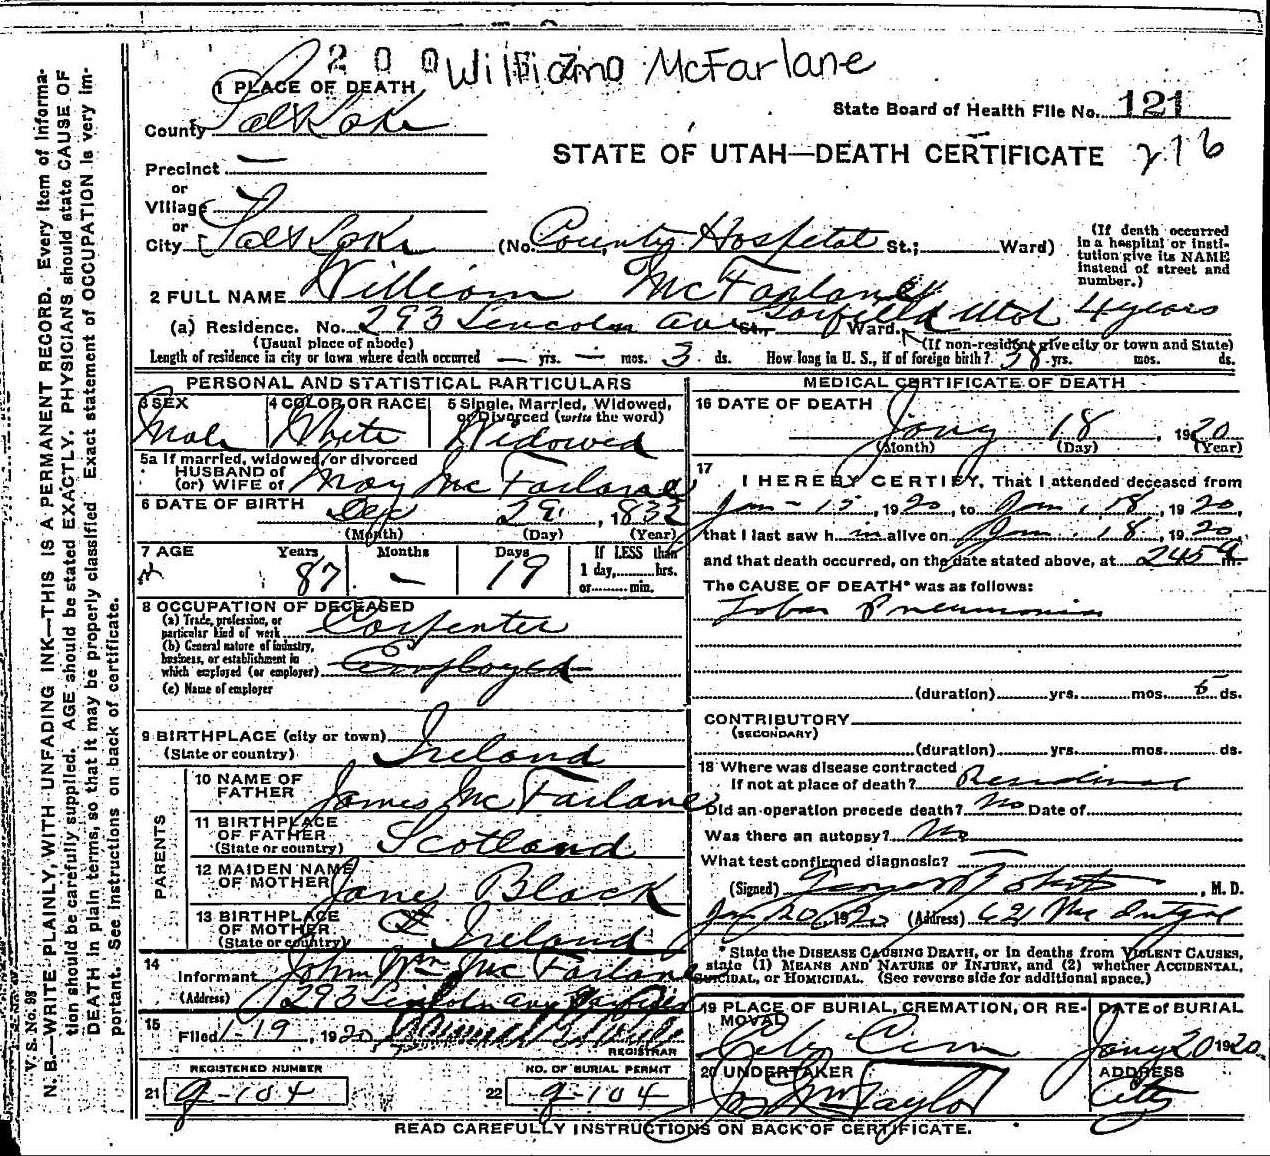 200 William McFarlane
1 PLACE OF DEATH
State Board of Health File No. 121
County Salt Lake
STATE OF UTAH—DEATH CERTIFICATE 216
Precinct —
or
Village
or
City Salt Lake (No. County Hospital St.; Ward)
(If death occurred in a hospital or institution give its NAME instead of street and number.)
2 FULL NAME William McFarlane
(a) Residence. No. 293 Lincoln Ave St., Ward. Garfield Utah 4 years
(Usual place of abode) (If non-resident give city or town and State)
Length of residence in city or town where death occurred — yrs. — mos. 3 ds. How long in U. S., if of foreign birth? 38 yrs. mos. ds.
PERSONAL AND STATISTICAL PARTICULARS
3 SEX 4 COLOR OR RACE 5 Single, Married, Widowed, or Divorced (write the word)
Male White Widowed
5a If married, widowed, or divorced
HUSBAND of
(or) WIFE of May McFarlane
6 DATE OF BIRTH Dec 29, 1832
(Month) (Day) (Year)
7 AGE Years Months Days If LESS than
1 day, hrs.
or min.
87 — 19
8 OCCUPATION OF DECEASED
(a) Trade, profession, or
particular kind of work Carpenter
(b) General nature of industry,
business, or establishment in
which employed (or employer) Employed
(c) Name of employer
9 BIRTHPLACE (city or town)
(State or country) Ireland
PARENTS
10 NAME OF
FATHER James McFarlane
11 BIRTHPLACE
OF FATHER
(State or country) Scotland
12 MAIDEN NAME
OF MOTHER Jane Black
13 BIRTHPLACE
OF MOTHER
(State or country) Ireland
14
Informant John Wm McFarlane
(Address) 293 Lincoln ave Garfield
15
Filed 1-19, 1920
REGISTRAR
REGISTERED NUMBER NO. OF BURIAL PERMIT
21 g-104 22 g-104
MEDICAL CERTIFICATE OF DEATH
16 DATE OF DEATH
Jany 18, 1920
(Month) (Day) (Year)
17
I HEREBY CERTIFY, That I attended deceased from
Jan-15, 1920, to Jan. 18, 1920,
that I last saw h im alive on Jan. 18, 1920
and that death occurred, on the date stated above, at 245 a m.
The CAUSE OF DEATH* was as follows:
Lobar Pneumonia
(duration) yrs. mos. 5 ds.
CONTRIBUTORY
(SECONDARY)
(duration) yrs. mos. ds.
18 Where was disease contracted
If not at place of death? Residence
Did an operation precede death? No Date of
Was there an autopsy? No
What test confirmed diagnosis? —
(Signed) , M. D.
Jan 20, 1920 (Address) 621 McIntyre
*State the DISEASE CAUSING DEATH, or in deaths from VIOLENT CAUSES,
state (1) MEANS AND NATURE OF INJURY, and (2) whether ACCIDENTAL,
SUICIDAL, or HOMICIDAL. (See reverse side for additional space.)
19 PLACE OF BURIAL, CREMATION, OR REMOVAL DATE of BURIAL
City Cem Jany 20 1920
20 UNDERTAKER ADDRESS
Jos Wm Taylor City
READ CAREFULLY INSTRUCTIONS ON BACK OF CERTIFICATE.
V. S. No. 98
N. B.—WRITE PLAINLY, WITH UNFADING INK—THIS IS A PERMANENT RECORD. Every item of information should be carefully supplied. AGE should be stated EXACTLY. PHYSICIANS should state CAUSE OF DEATH in plain terms, so that it may be properly classified. Exact statement of OCCUPATION is very important. See instructions on back of certificate.